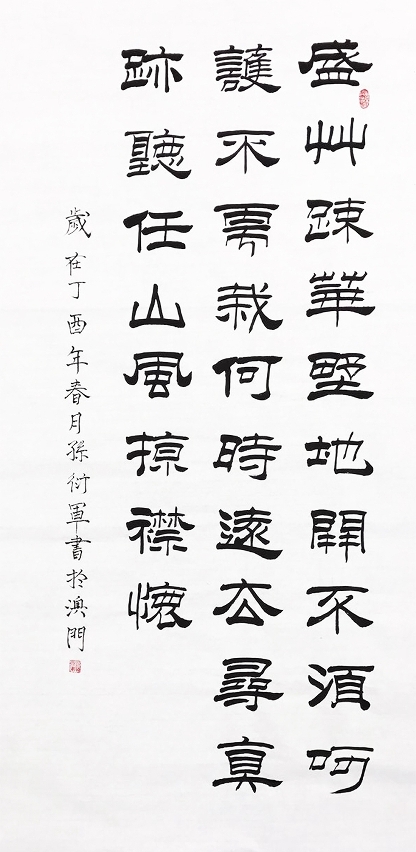 盛艸疎華墅地開不須呵
護不需栽何時遠去尋真
跡聽任山風掠襟懷
歲在丁酉年春月孫衍軍書於澳門